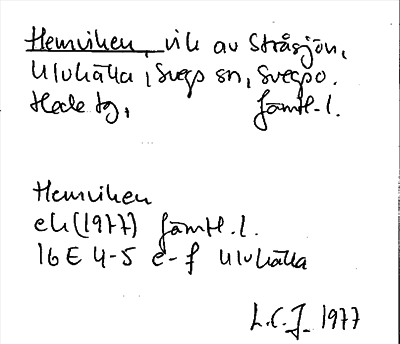 Hemviken, vik av Stråsjön,
Ulvkälla, Svegs sn, Svegs o.
Hede tg, Jämtl. l.
Hemviken
ek (1977) Jämtl. l.
16 E 4-5 e-f Ulvkälla
L.C.J. 1977